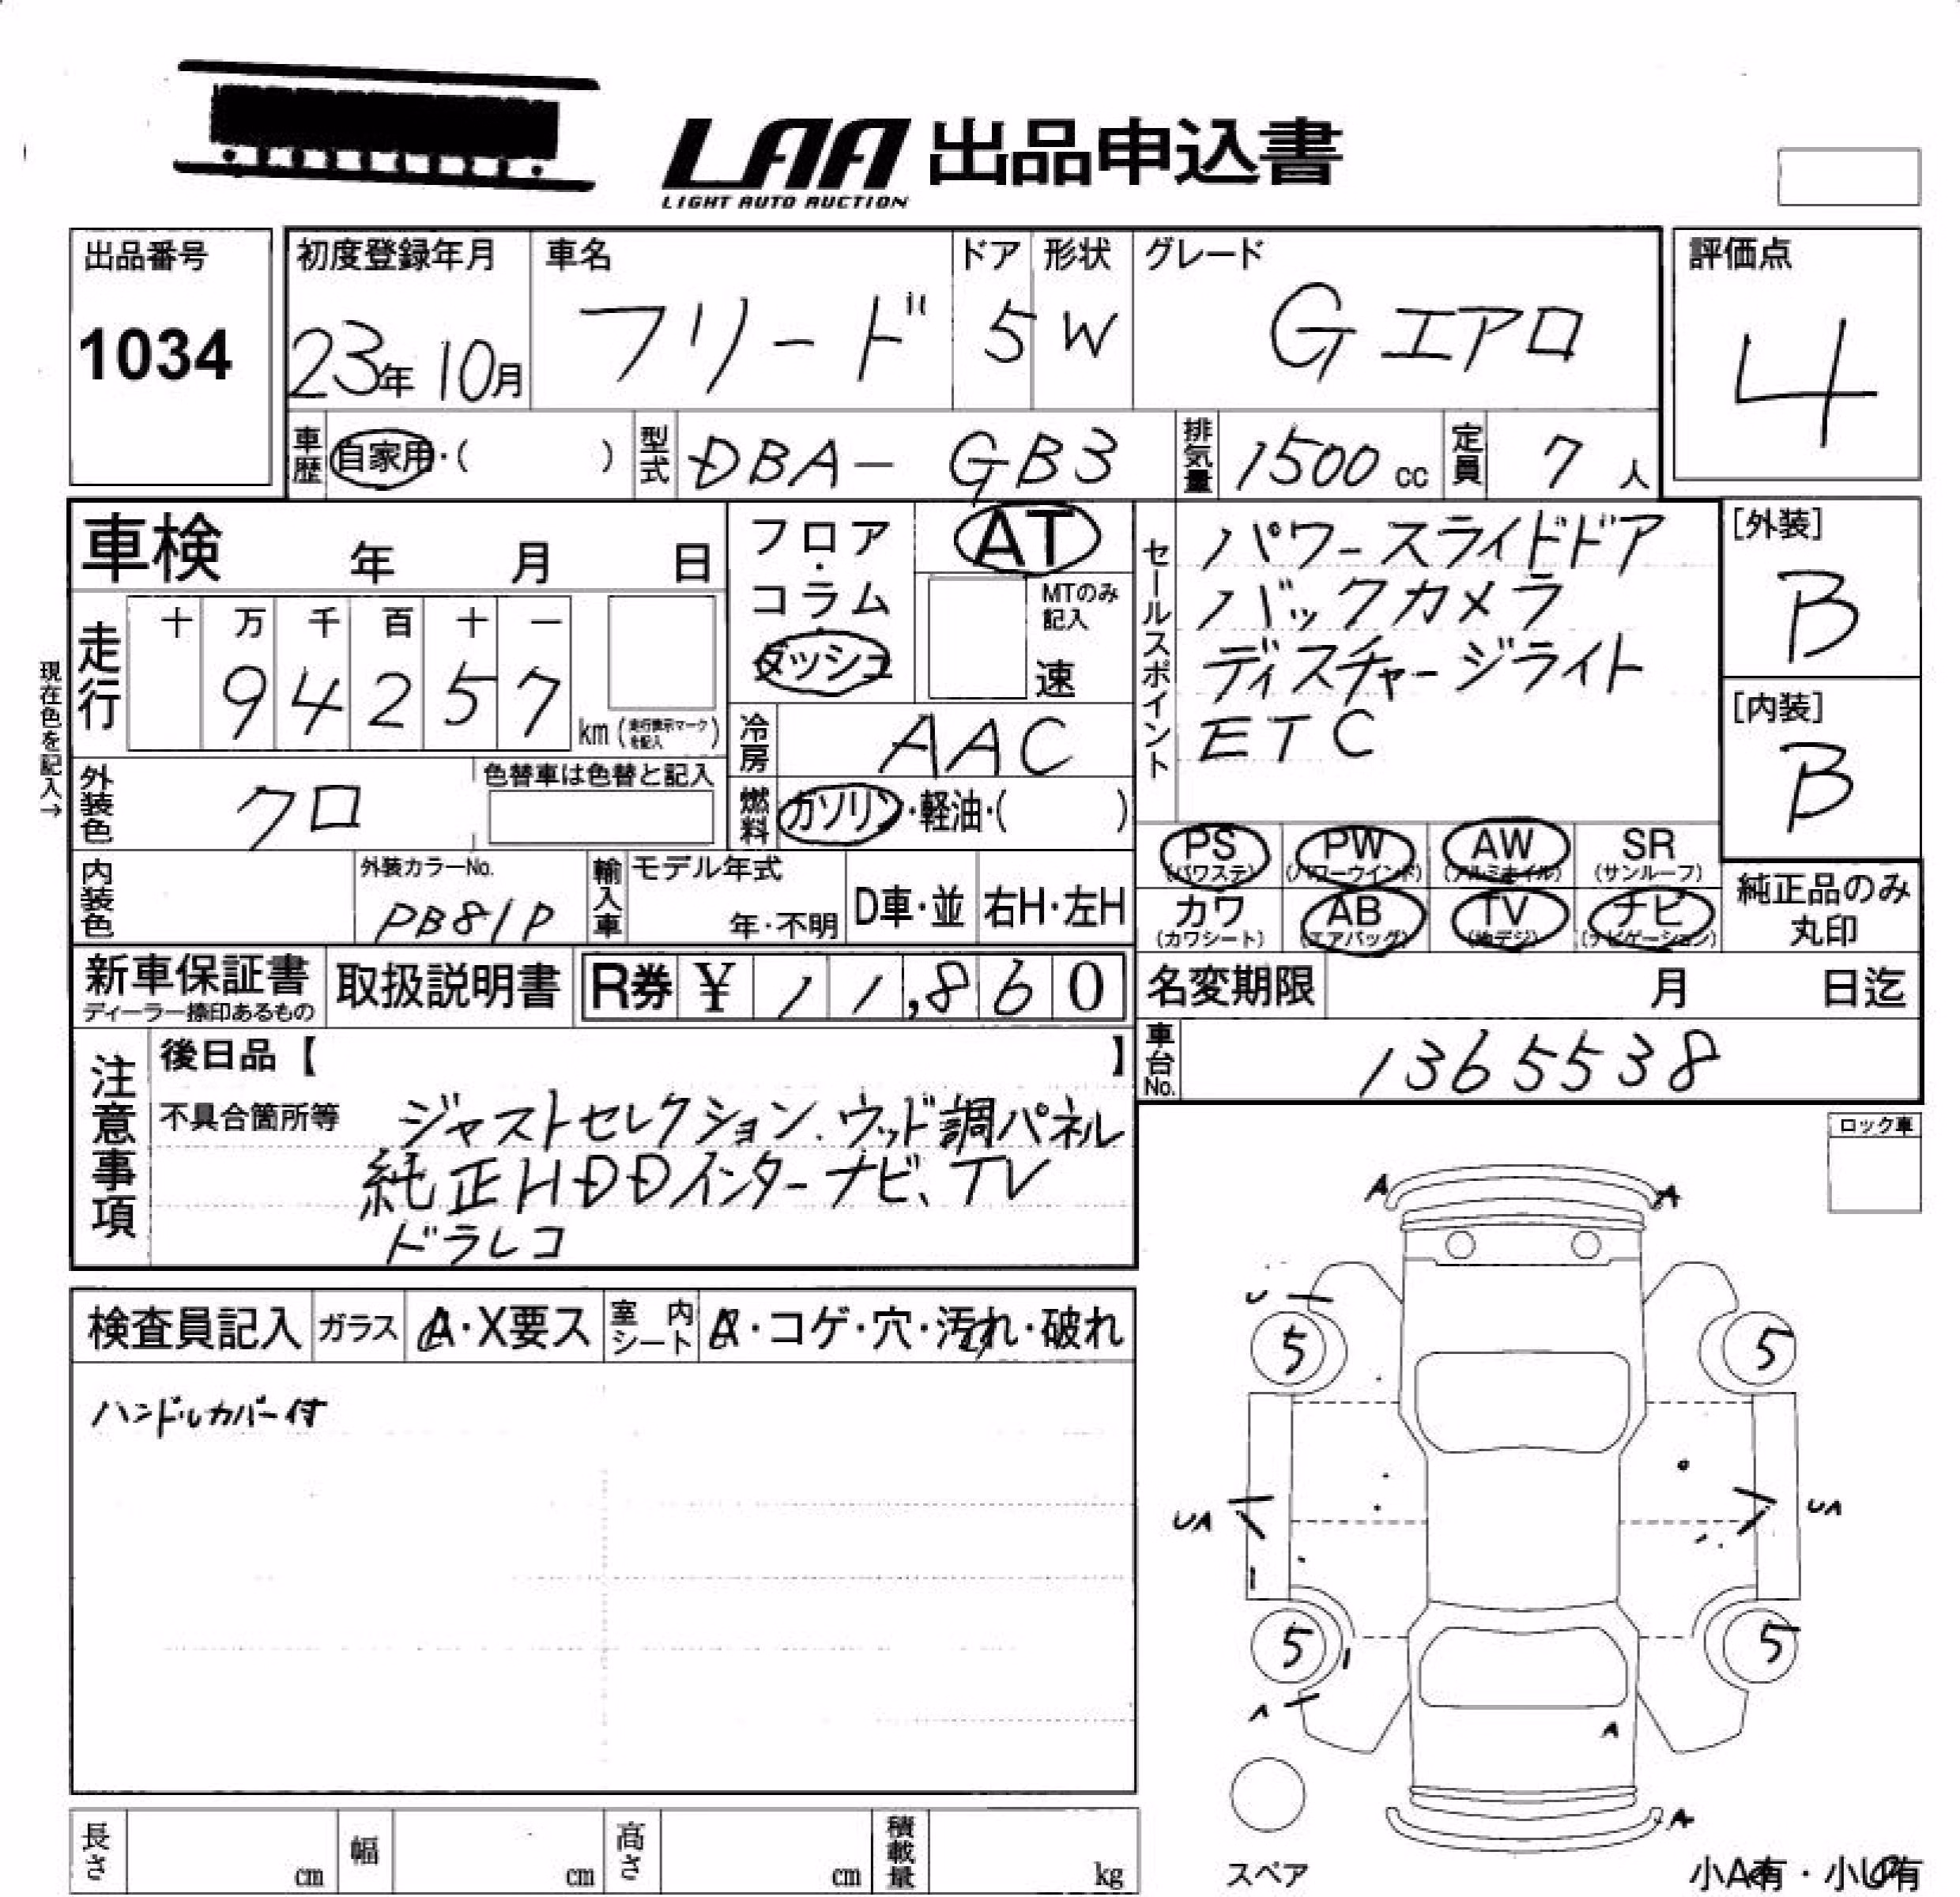 LAA 出品申込書
LIGHT AUTO AUCTION
出品番号
1034
初度登録年月
23年 10月
車名
フリード
ドア
5
形状
W
グレード
Gエアロ
評価点
4
車歴
自家用・( )
型式
DBA- GB3
排気量
1500 cc
定員
7 人
車検 年 月 日
フロア・コラム・ダッシュ
AT
MTのみ記入
速
セールスポイント
パワースライドドア
バックカメラ
ディスチャージライト
ETC
[外装]
B
[内装]
B
現在色を記入→
走行
十 万 千 百 十 一
9 4 2 5 7
km (走行表示マークを記入)
冷房
AAC
外装色
クロ
色替車は色替と記入
燃料
ガソリン・軽油・( )
PS (パワステ)
PW (パワーウインド)
AW (アルミホイル)
SR (サンルーフ)
カワ (カワシート)
AB (エアバッグ)
TV (地デジ)
ナビ (ナビゲーション)
純正品のみ丸印
内装色
外装カラーNo.
PB81P
輸入車
モデル年式
年・不明
D車・並
右H・左H
新車保証書
ディーラー捺印あるもの
取扱説明書
R券 ¥ 11,860
名変期限 月 日迄
車台No.
1365538
注意事項
後日品【 】
不具合箇所等
ジャストセレクション、ウッド調パネル
純正HDDインターナビ、TV
ドラレコ
ロック車
検査員記入
ガラス
A・X要ス
室内シート
・コゲ・穴・汚れ・破れ
ハンドルカバー付
A A
U
5 5
UA UA
5 5
A
A
A
スペア
小A有・小U有
長さ cm
幅 cm
高さ cm
積載量 kg